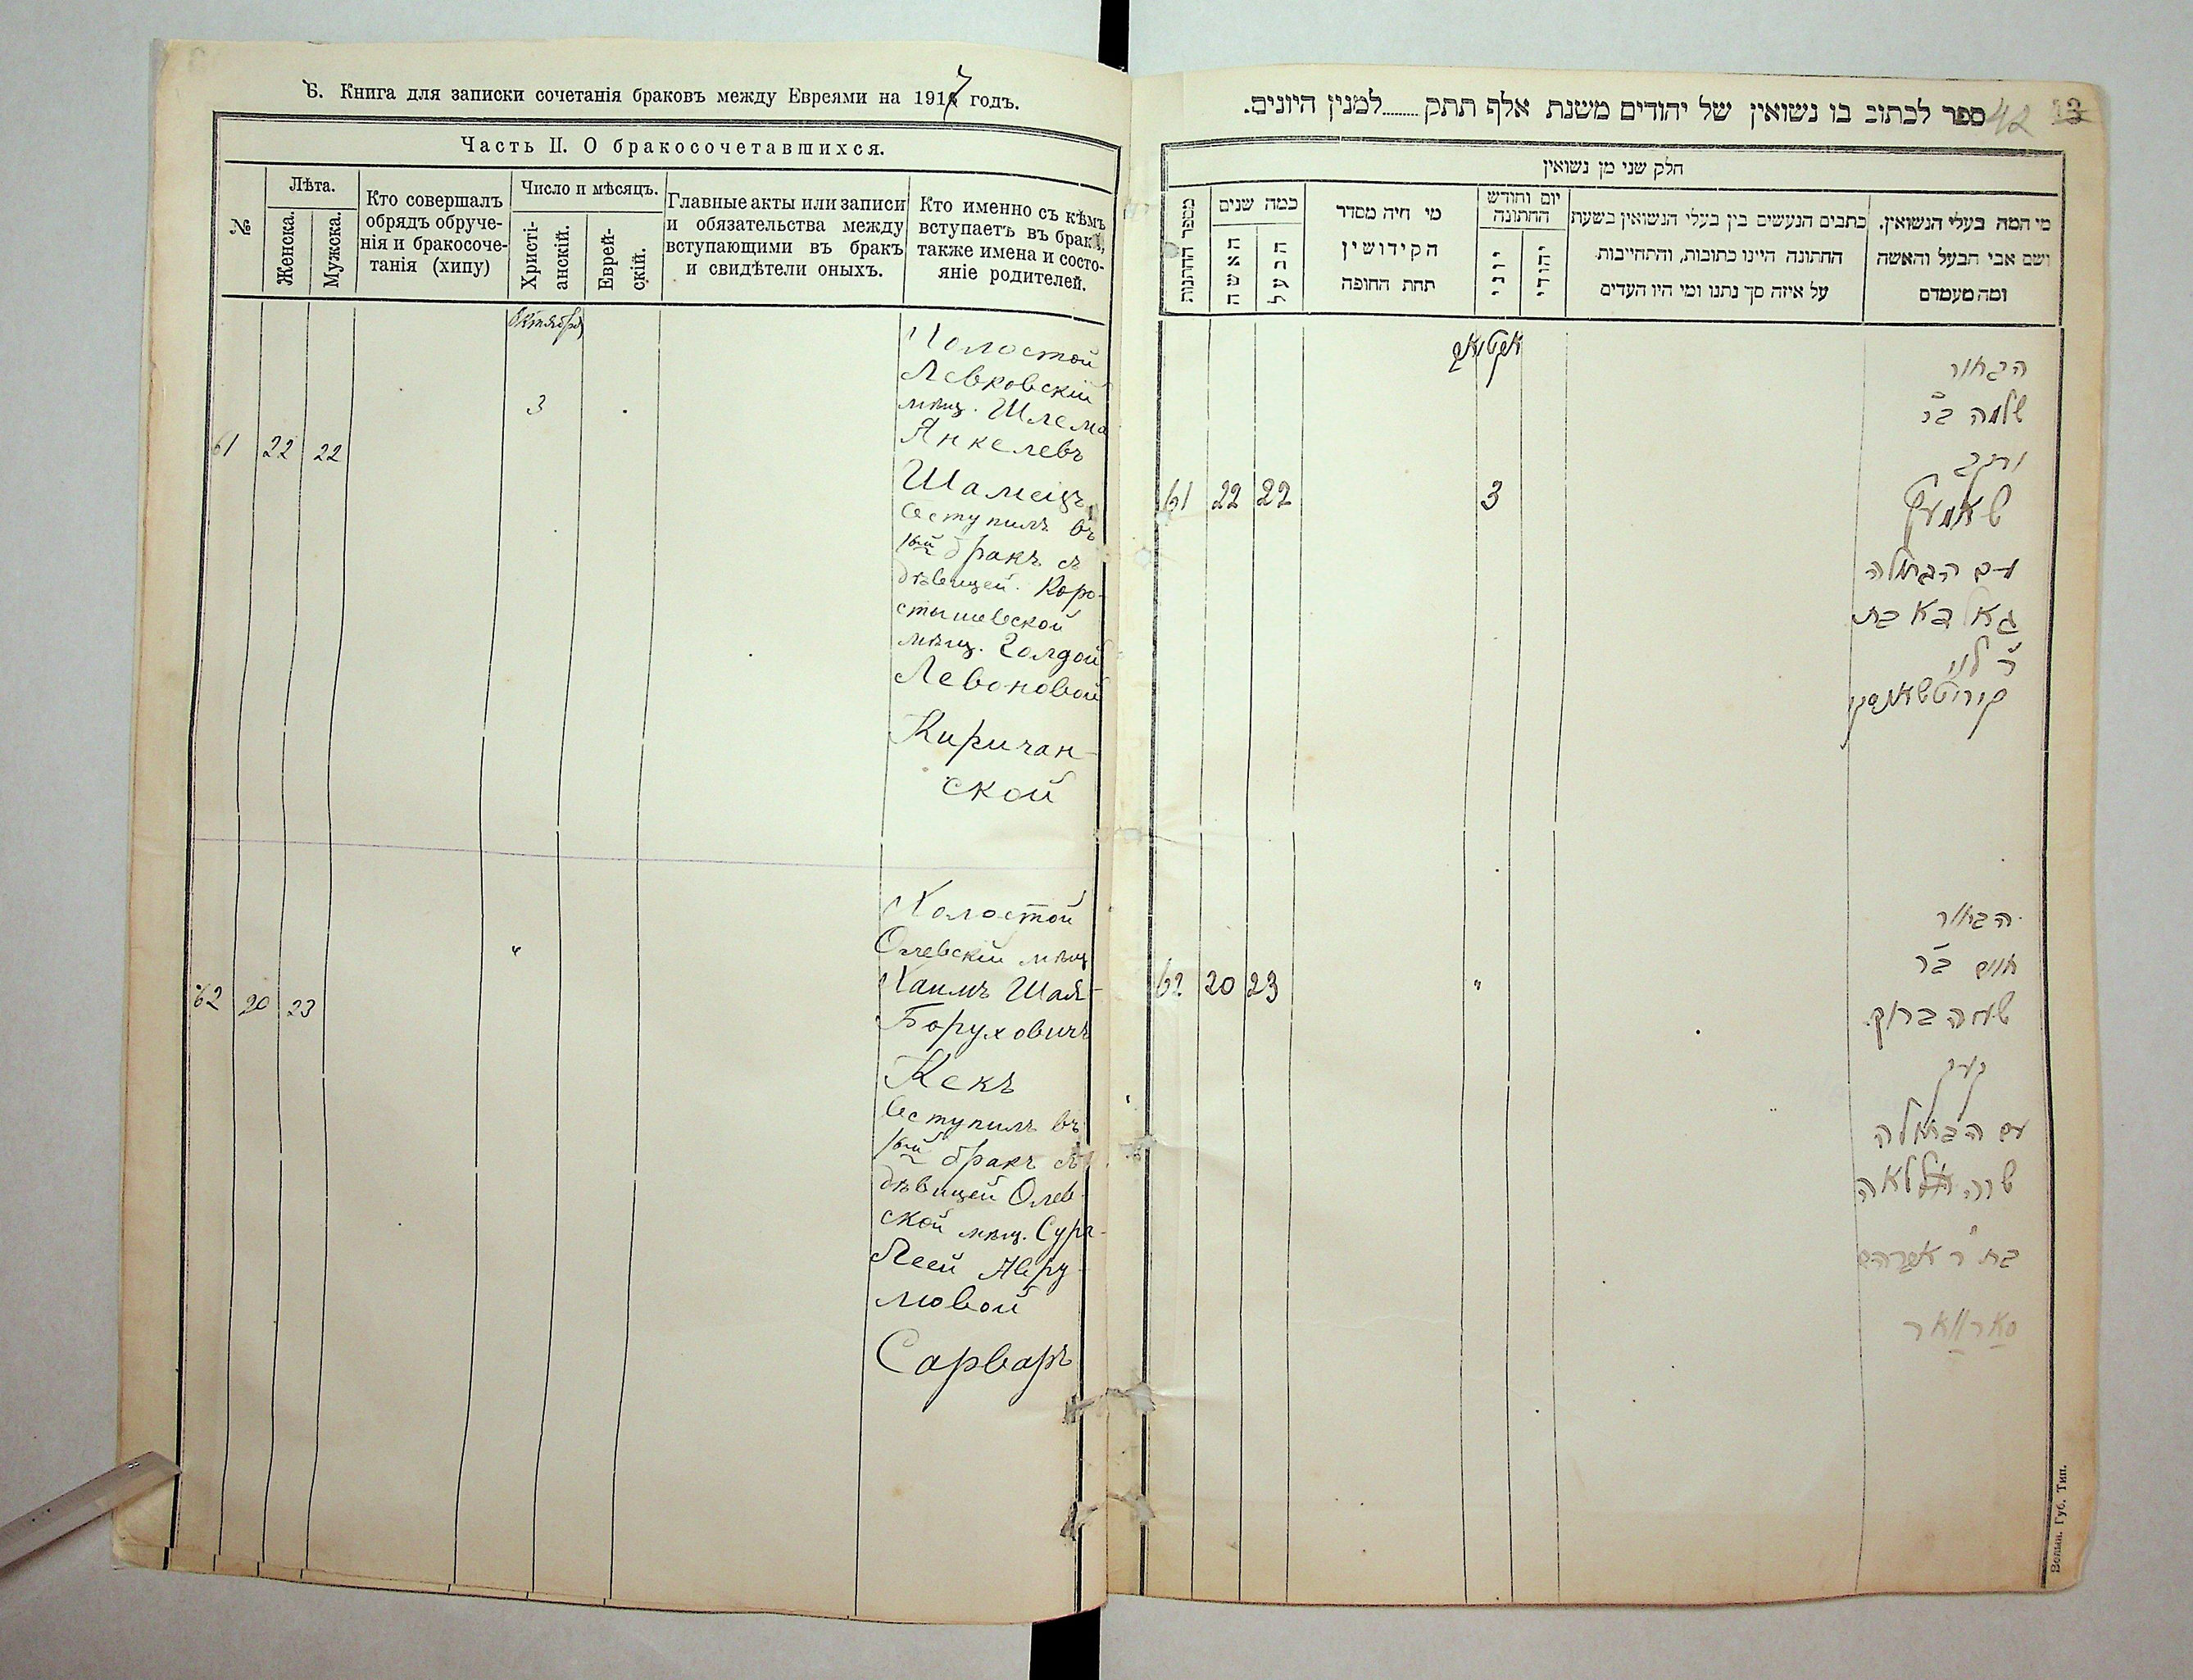 Б. Книга для записки сочетанія браковъ между Евреями на 1917 годъ.
Часть II. О бракосочетавшихся.
№
Лѣта.
Женска.
Мужска.
Кто совершалъ
обрядъ обруче-
нія и бракосоче-
танія (хипу)
Число и мѣсяцъ.
Христі-
анскій.
Еврей-
скій.
Главные акты или записи
и обязательства между
вступающими въ бракъ
и свидѣтели оныхъ.
Кто именно съ кѣмъ
вступаетъ въ бракъ,
также имена и состо-
яніе родителей.
Октября
61 22 22 3
Холостой
Левковскій
мѣщ. Шлема
Янкелевъ
Шамецъ
вступилъ въ
1ый бракъ съ
дѣвицей Коро-
стышевской
мѣщ. Голдой
Левоновой
Киричан-
ской
62 20 23 "
Холостой
Олевскій мѣщ
Хаимъ Шая-
Боруховичъ
Кекъ
вступилъ въ
1ый бракъ съ
дѣвицей Олев-
ской мѣщ. Сура-
Леей Авру-
мовой
Сарваръ
42 13
ספר לכתוב בו נשואין של יהודים משנת אלף תתק........למנין היונים.
חלק שני מן נשואין
מספר החתנות
כמה שנים
האשה
הבעל
מי היה מסדר
הקידושין
תחת החופה
יום וחודש
החתונה
יוני
יהודי
כתבים הנעשים בין בעלי הנשואין בשעת
החתונה היינו כתובות, והתחייבות
על איזה סך נתנו ומי היו העדים
מי המה בעלי הנשואין.
ושם אבי הבעל והאשה
ומה מעמדם
61 22 22 3
הבחור
שלמה ב״ר
יעקב
שאמעץ
עם הבתולה
גאלדא בת
ר׳ לוי
62 20 23 "
הבחור
חיים ב״ר
ישעיה ברוך
קעק
עם הבתולה
שרה לאה
בת ר׳ אברהם
סארוואר
Волын. Губ. Тип.